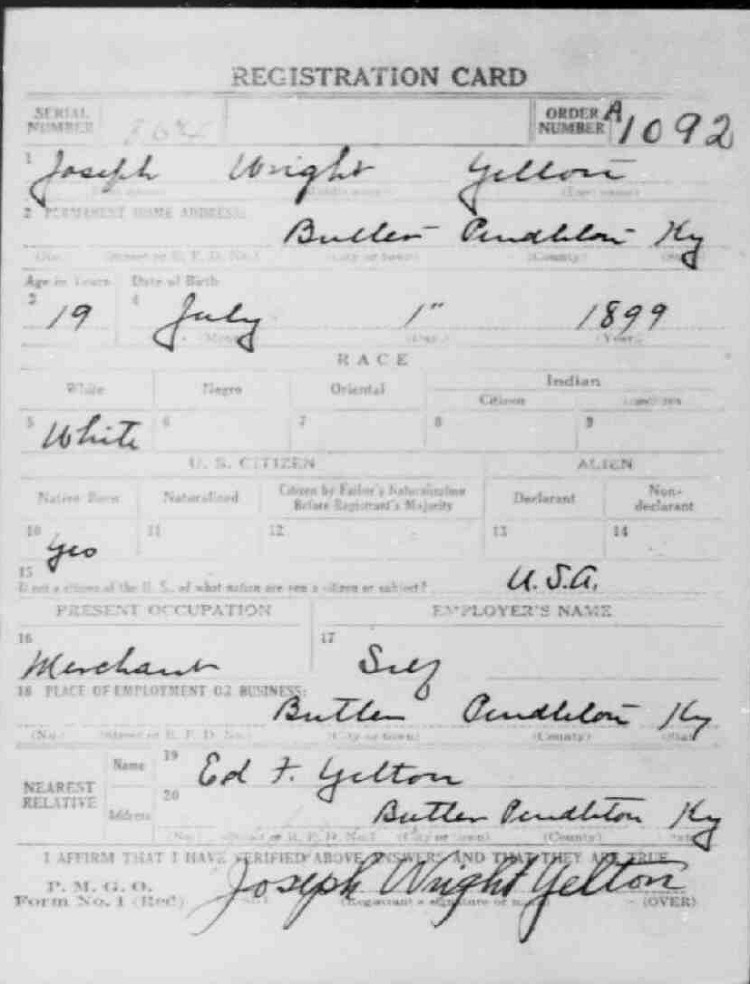 REGISTRATION CARD
SERIAL NUMBER ORDER NUMBER A 1092
1 Joseph Wright Yelton
(First name) (Middle name) (Last name)
2 PERMANENT HOME ADDRESS:
Butler Pendleton Ky
(No.) (Street or R. F. D. No.) (City or town) (County) (State)
Age in Years Date of Birth
3 19 4 July 1" 1899
(Month) (Day) (Year)
RACE
White Negro Oriental Indian
Citizen
5 White 6 7 8 9
U. S. CITIZEN ALIEN
Native Born Naturalized Citizen by Father's Naturalization Before Registrant's Majority Declarant Non-declarant
10 Yes 11 12 13 14
15 If not a citizen of the U. S., of what nation are you a citizen or subject? U.S.A.
PRESENT OCCUPATION EMPLOYER'S NAME
16 Merchant 17 Self
18 PLACE OF EMPLOYMENT OR BUSINESS:
Butler Pendleton Ky
(No.) (Street or R. F. D. No.) (City or town) (County) (State)
NEAREST RELATIVE Name 19 Ed F. Yelton
Address 20 Butler Pendleton Ky
(No.) (Street or R. F. D. No.) (City or town) (County) (State)
I AFFIRM THAT I HAVE VERIFIED ABOVE ANSWERS AND THAT THEY ARE TRUE
P. M. G. O.
Form No. 1 (Red) Joseph Wright Yelton
(Registrant's signature or mark) (OVER)